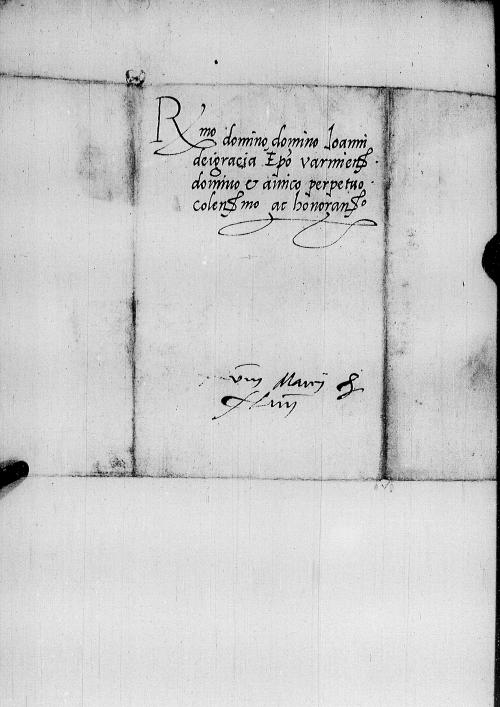 Rmo domino domino Ioanni
deigracia Epo varmiens
domino & amico perpetuo
colenmo ac honoran
viii Marcii